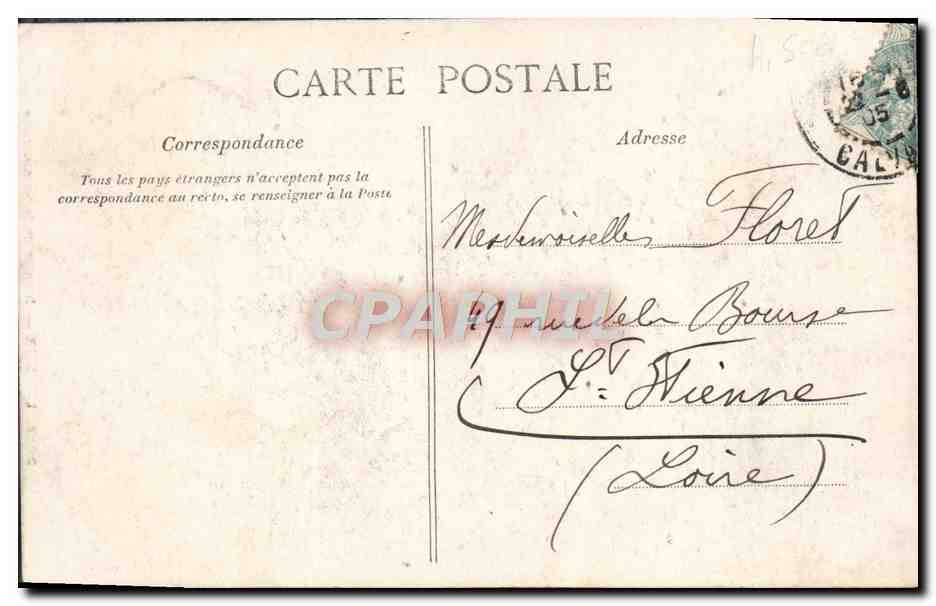 CARTE POSTALE
Correspondance
Tous les pays étrangers n'acceptent pas la
correspondance au recto, se renseigner à la Poste
Adresse
Mesdemoiselles Floret
49 rue de la Bourse
St. Etienne
(Loire)
CPAPHIL
05